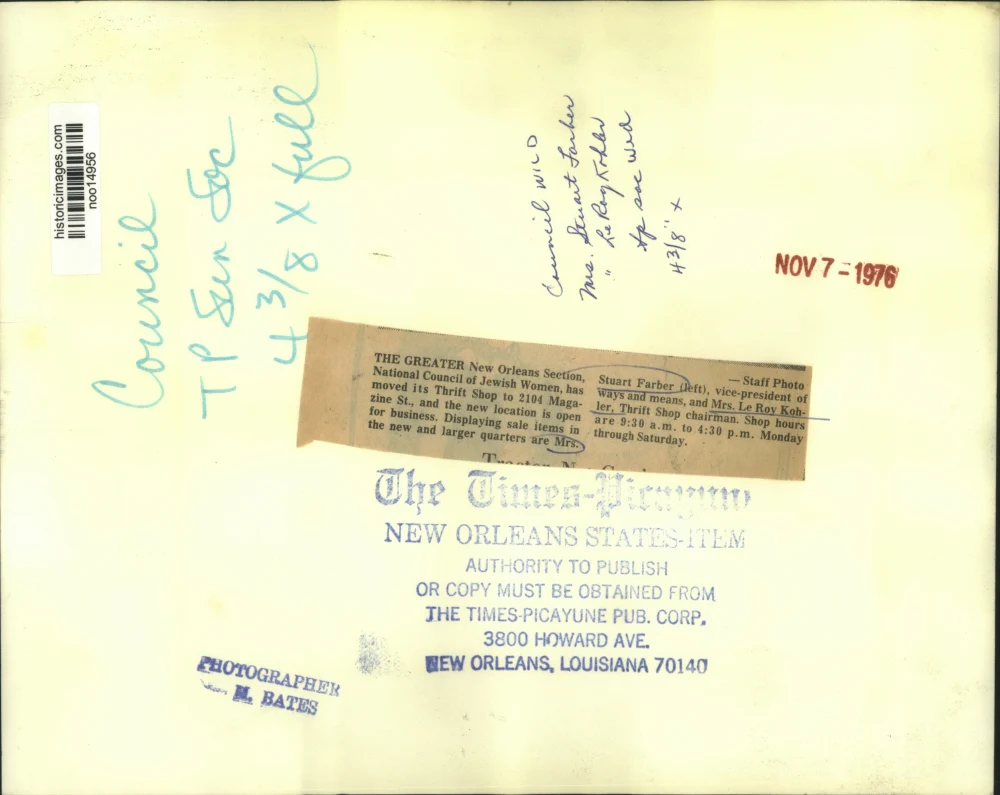 historicimages.com
noo14956
Council
TP Sun Soc
4 3/8 X full
Council WILD
Mrs. Stuart Farber
" LeRoy Kohler
tp soc wed
4 3/8" x
NOV 7 - 1976
THE GREATER New Orleans Section,
National Council of Jewish Women, has
moved its Thrift Shop to 2104 Maga-
zine St., and the new location is open
for business. Displaying sale items in
the new and larger quarters are Mrs.
— Staff Photo
Stuart Farber (left), vice-president of
ways and means, and Mrs. Le Roy Koh-
ler, Thrift Shop chairman. Shop hours
are 9:30 a.m. to 4:30 p.m. Monday
through Saturday.
The Times-Picayune
NEW ORLEANS STATES-ITEM
AUTHORITY TO PUBLISH
OR COPY MUST BE OBTAINED FROM
THE TIMES-PICAYUNE PUB. CORP.
3800 HOWARD AVE.
NEW ORLEANS, LOUISIANA 70140
PHOTOGRAPHER
M. BATES